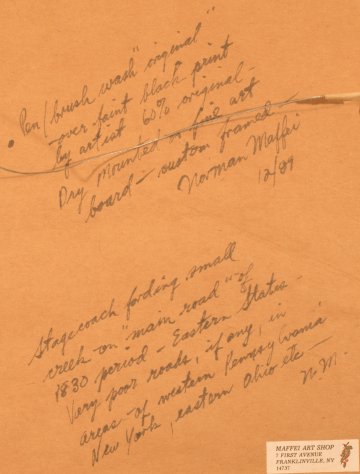 • Pen/brush wash "original"
over faint black print
by artist 60% original -
Dry mounted on fine art
board - custom framed -
Norman Maffei
12/89
Stagecoach fording small
creek on "main road" of
1830 period - Eastern States -
Very poor roads, if any, in
areas of western Pennsylvania
New York, eastern Ohio etc -
N.M.
MAFFEI ART SHOP
7 FIRST AVENUE
FRANKLINVILLE, NY
14737